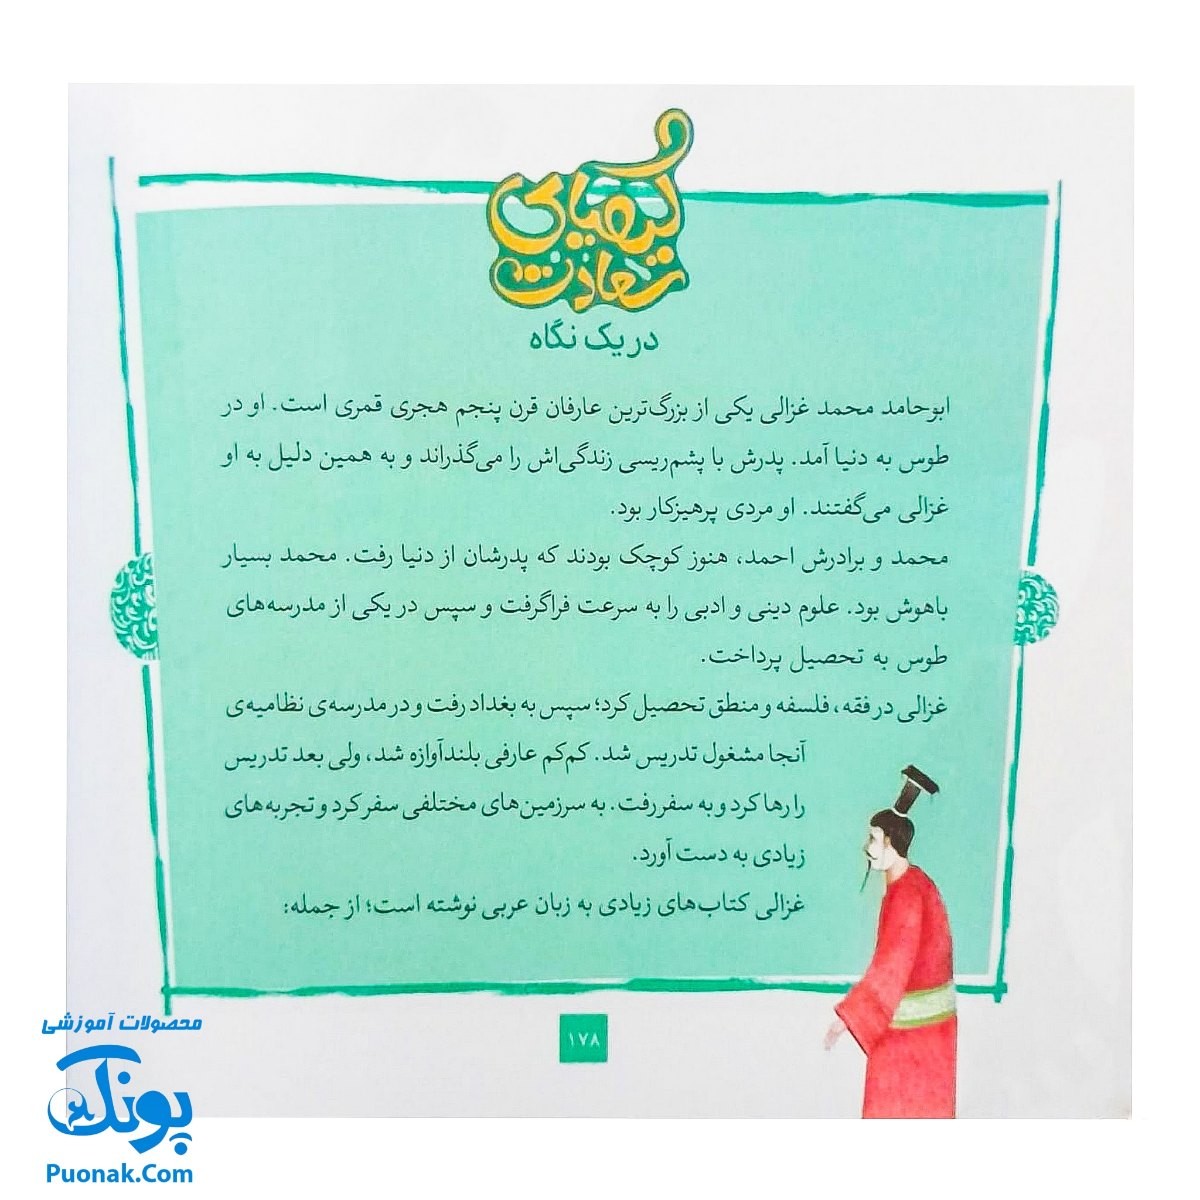 کیمیای
سعادت
در یک نگاه
ابوحامد محمد غزالی یکی از بزرگ‌ترین عارفان قرن پنجم هجری قمری است. او در
طوس به دنیا آمد. پدرش با پشم‌ریسی زندگی‌اش را می‌گذراند و به همین دلیل به او
غزالی می‌گفتند. او مردی پرهیزکار بود.
محمد و برادرش احمد، هنوز کوچک بودند که پدرشان از دنیا رفت. محمد بسیار
باهوش بود. علوم دینی و ادبی را به سرعت فراگرفت و سپس در یکی از مدرسه‌های
طوس به تحصیل پرداخت.
غزالی در فقه، فلسفه و منطق تحصیل کرد؛ سپس به بغداد رفت و در مدرسه‌ی نظامیه‌ی
آنجا مشغول تدریس شد. کم‌کم عارفی بلندآوازه شد، ولی بعد تدریس
را رها کرد و به سفر رفت. به سرزمین‌های مختلفی سفر کرد و تجربه‌های
زیادی به دست آورد.
غزالی کتاب‌های زیادی به زبان عربی نوشته است؛ از جمله:
۱۷۸
محصولات آموزشی
پونک
Puonak.Com